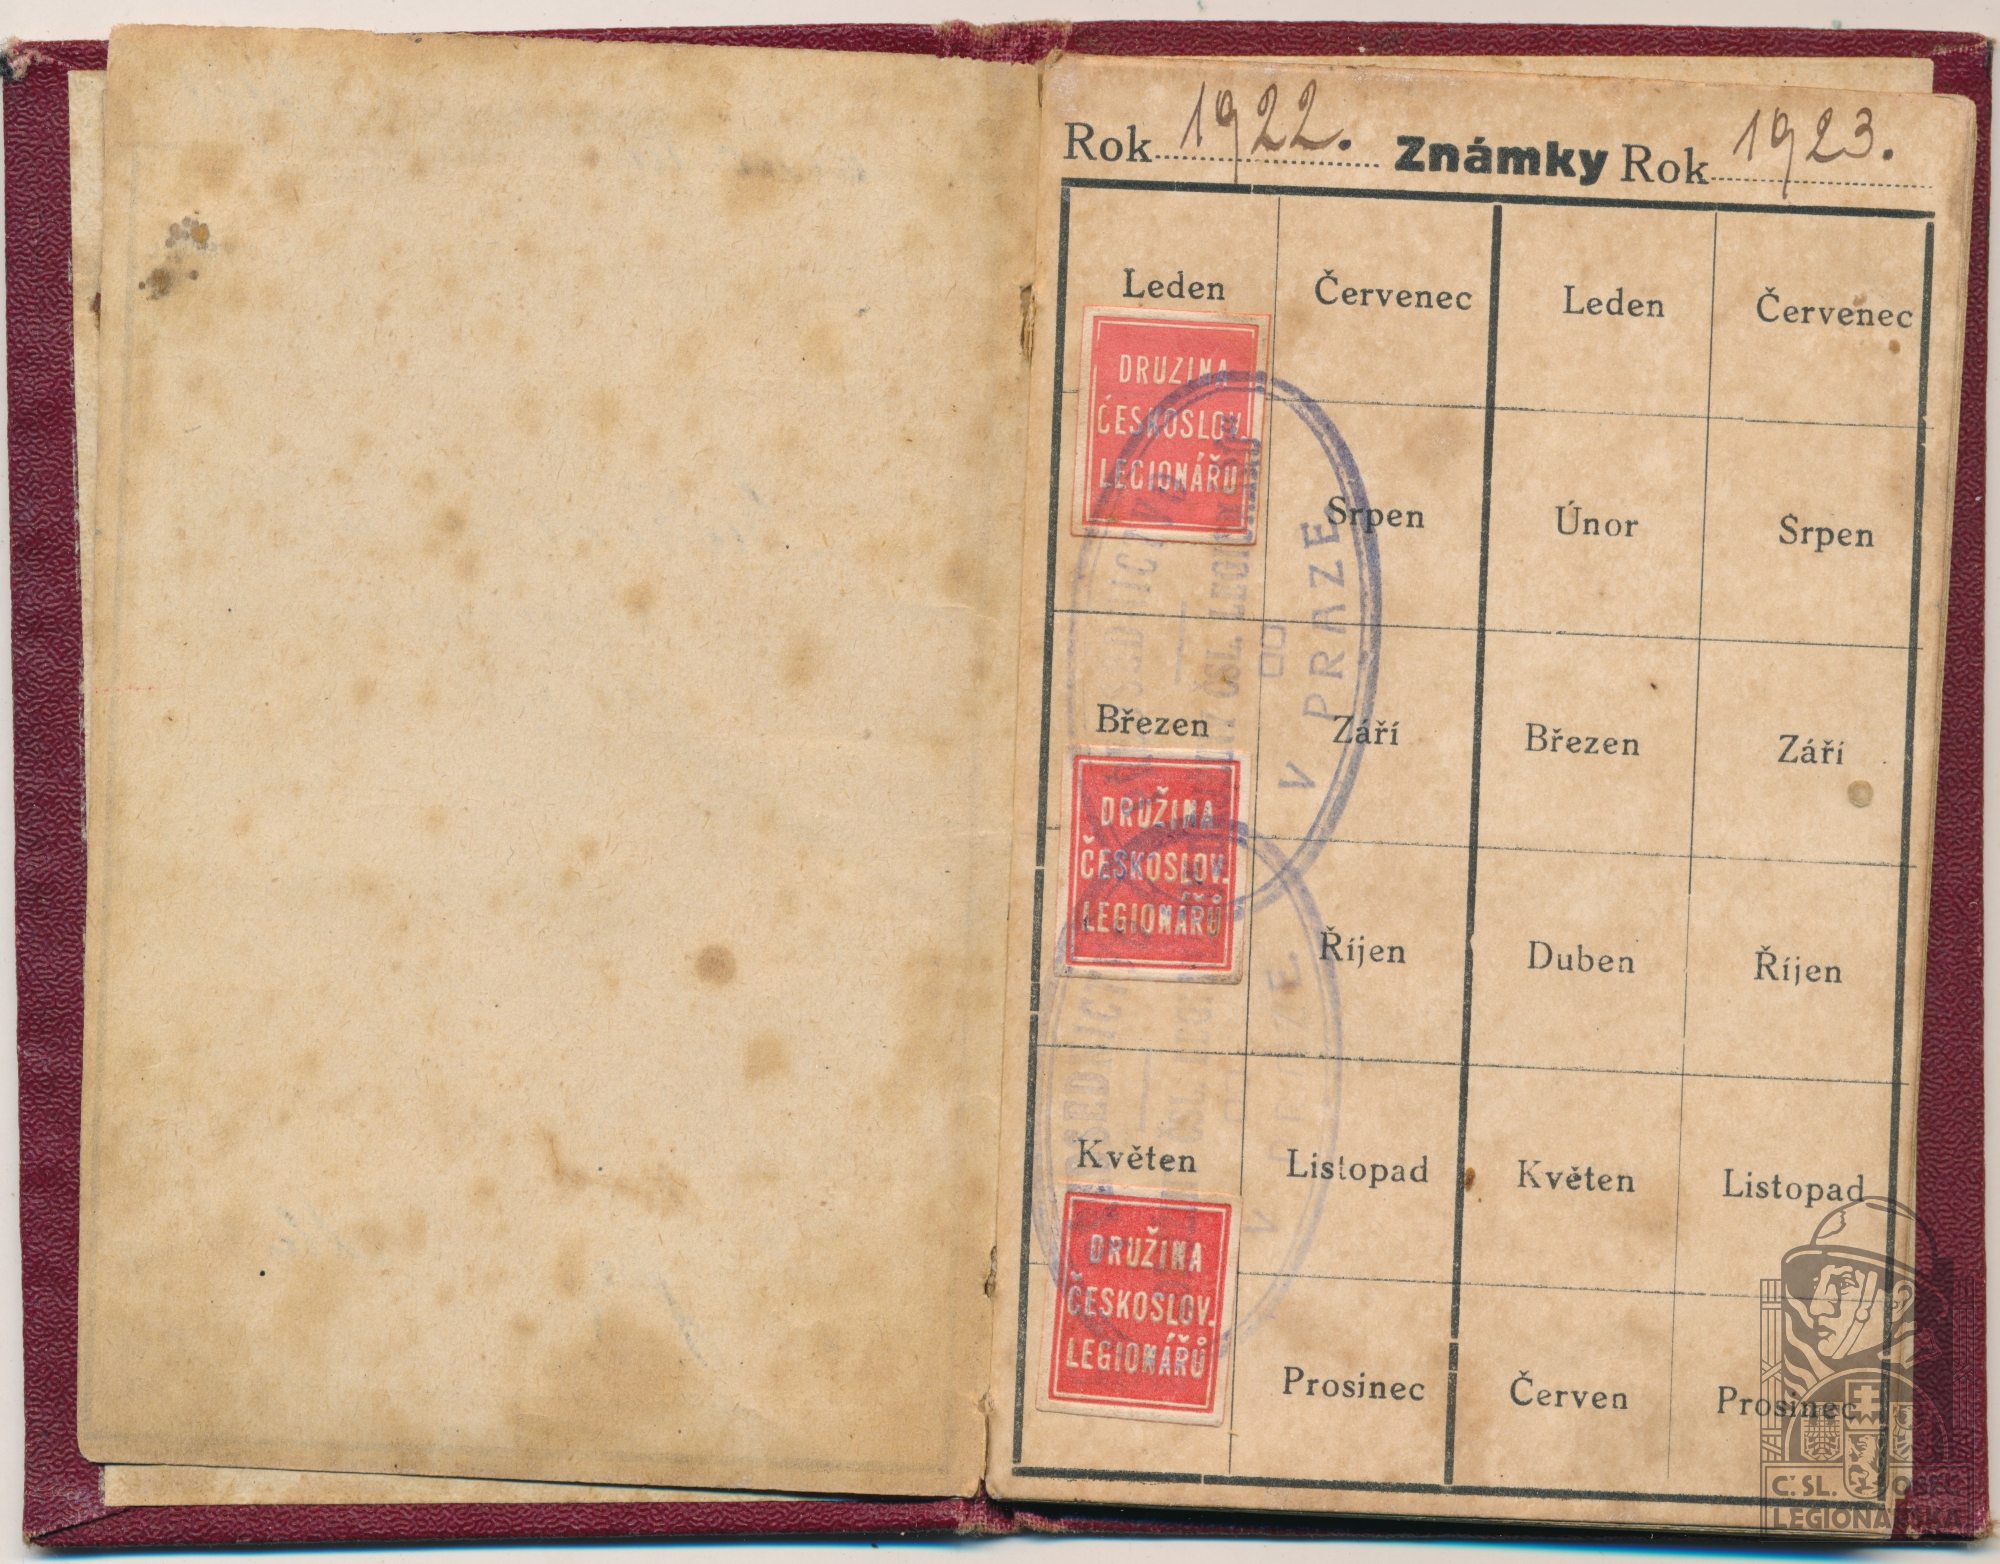 Rok 1922. Známky Rok 1923.
Leden Červenec Leden Červenec
DRUZINA
ČESKOSLOV
LEGIONÁŘU
Srpen Únor Srpen
V PRAZE
Březen Září Březen Září
DRUŽINA
ČESKOSLOV.
LEGIONÁŘŮ
Říjen Duben Říjen
ČSL.
Květen Listopad Květen Listopad
DRUŽINA
ČESKOSLOV.
LEGIONÁŘŮ
Prosinec Červen Prosinec
Č. SL. OBEC
LEGIONÁŘSKÁ